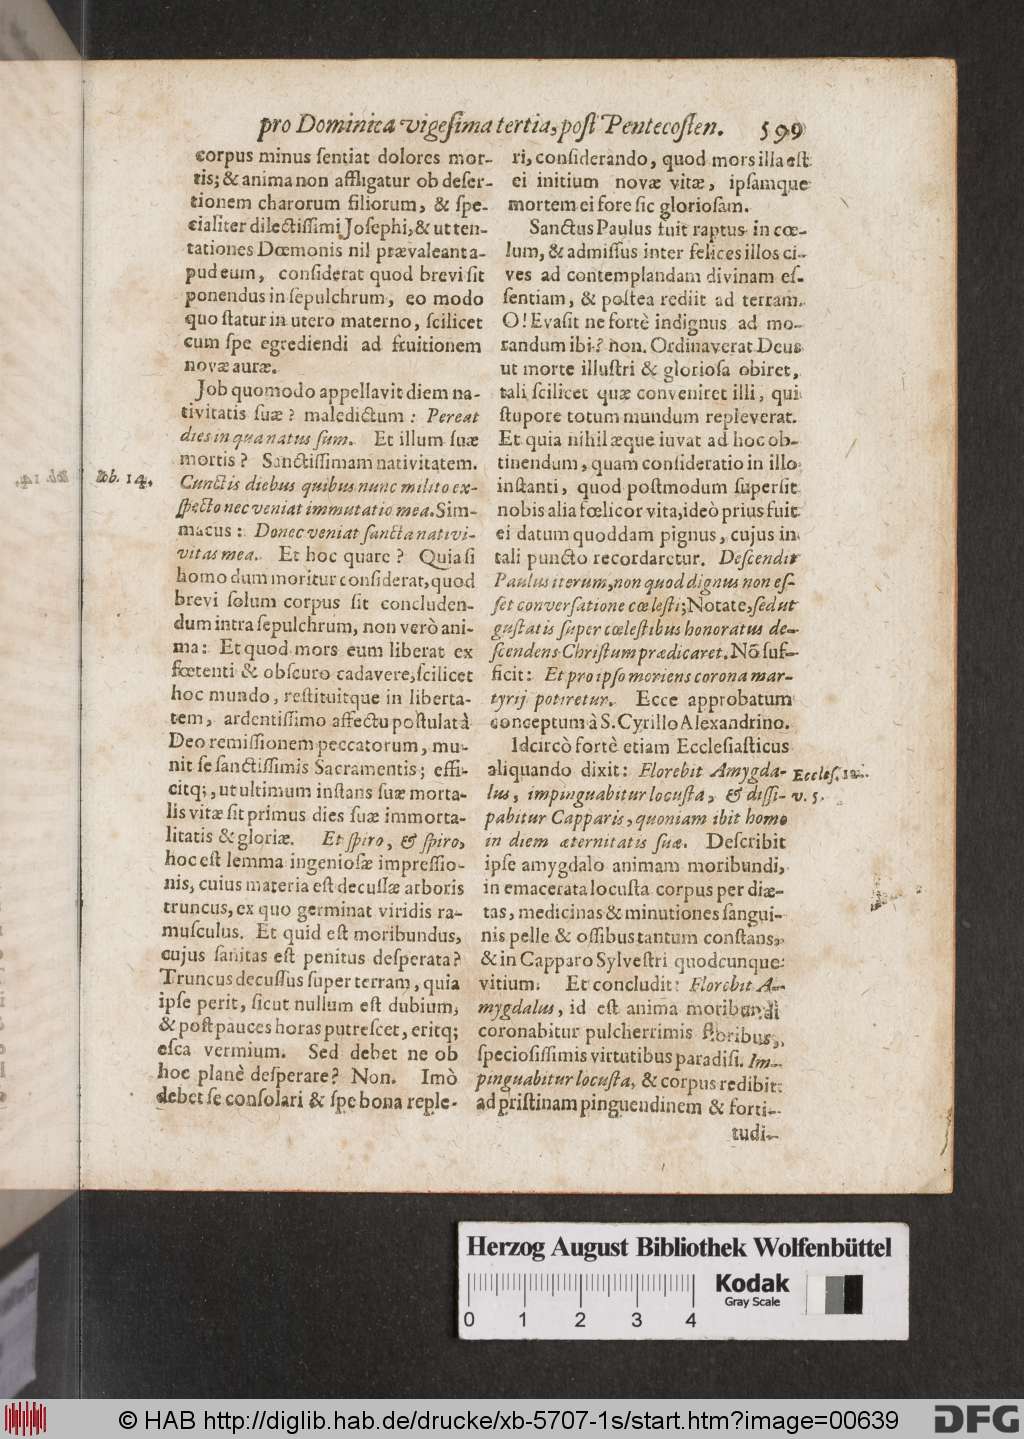 pro Dominica vigeſima tertia, poſt Pentecoſten. 599
corpus minus ſentiat dolores mor-
tis; & anima non affligatur ob deſer-
tionem charorum filiorum, & ſpe-
cialiter dilectiſſimi Joſephi, & ut ten-
tationes Dœmonis nil prævaleant a-
pud eum, conſiderat quod brevi ſit
ponendus in ſepulchrum, eo modo
quo ſtatur in utero materno, ſcilicet
cum ſpe egrediendi ad fruitionem
novæ auræ.
Job quomodo appellavit diem na-
tivitatis ſuæ? maledictum: Pereat
dies in qua natus ſum. Et illum ſuæ
mortis? Sanctiſſimam nativitatem.
Iob. 14.
Cunctis diebus quibus nunc milito ex-
ſpecto nec veniat immutatio mea. Sim-
macus: Donec veniat ſancta nativi-
vitas mea. Et hoc quare? Quia ſi
homo dum moritur conſiderat, quod
brevi ſolum corpus ſit concluden-
dum intra ſepulchrum, non verò ani-
ma: Et quod mors eum liberat ex
fœtenti & obſcuro cadavere, ſcilicet
hoc mundo, reſtituitque in liberta-
tem, ardentiſſimo affectu poſtulat à
Deo remiſſionem peccatorum, mu-
nit ſe ſanctiſſimis Sacramentis; effi-
citq;, ut ultimum inſtans ſuæ morta-
lis vitæ ſit primus dies ſuæ immorta-
litatis & gloriæ. Et ſpiro, & ſpiro,
hoc eſt lemma ingenioſæ impreſſio-
nis, cuius materia eſt decuſſæ arboris
truncus, ex quo germinat viridis ra-
muſculus. Et quid eſt moribundus,
cujus ſanitas eſt penitus deſperata?
Truncus decuſſus ſuper terram, quia
ipſe perit, ſicut nullum eſt dubium,
& poſt pauces horas putreſcet, eritq;
eſca vermium. Sed debet ne ob
hoc planè deſperare? Non. Imò
debet ſe conſolari & ſpe bona reple-
ri, conſiderando, quod mors illa eſt
ei initium novæ vitæ, ipſamque
mortem ei fore ſic glorioſam.
Sanctus Paulus fuit raptus in cœ-
lum, & admiſſus inter felices illos ci-
ves ad contemplandam divinam eſ-
ſentiam, & poſtea rediit ad terram.
O! Evaſit ne fortè indignus ad mo-
randum ibi? non. Ordinaverat Deus
ut morte illuſtri & glorioſa obiret,
tali ſcilicet quæ conveniret illi, qui
ſtupore totum mundum repleverat.
Et quia nihil æque iuvat ad hoc ob-
tinendum, quam conſideratio in illo
inſtanti, quod poſtmodum ſuperſit
nobis alia fœlicor vita, ideò prius fuit
ei datum quoddam pignus, cujus in
tali puncto recordaretur. Deſcendit
Paulus iterum, non quod dignus non eſ-
ſet converſatione cœleſti; Notate, ſed ut
guſtatis ſuper cœleſtibus honoratus de-
ſcendens Chriſtum prædicaret. Nõ ſuf-
ficit: Et pro ipſo moriens corona mar-
tyrij potiretur. Ecce approbatum
conceptum à S. Cyrillo Alexandrino.
Idcircò fortè etiam Eccleſiaſticus
aliquando dixit: Florebit Amygda-
Eccleſ. 12.
lus, impinguabitur locuſta, & diſſi-
v. 5.
pabitur Capparis, quoniam ibit homo
in diem æternitatis ſuæ. Deſcribit
ipſe amygdalo animam moribundi,
in emacerata locuſta corpus per diæ-
tas, medicinas & minutiones ſangui-
nis pelle & oſſibus tantum conſtans,
& in Capparo Sylveſtri quodcunque
vitium. Et concludit: Florebit A-
mygdalus, id eſt anima moribundi
coronabitur pulcherrimis floribus,
ſpecioſiſſimis virtutibus paradiſi. Im-
pinguabitur locuſta, & corpus redibit
ad priſtinam pinguendinem & forti-
tudi-
Herzog August Bibliothek Wolfenbüttel
Kodak
Gray Scale
0 1 2 3 4
© HAB http://diglib.hab.de/drucke/xb-5707-1s/start.htm?image=00639
DFG